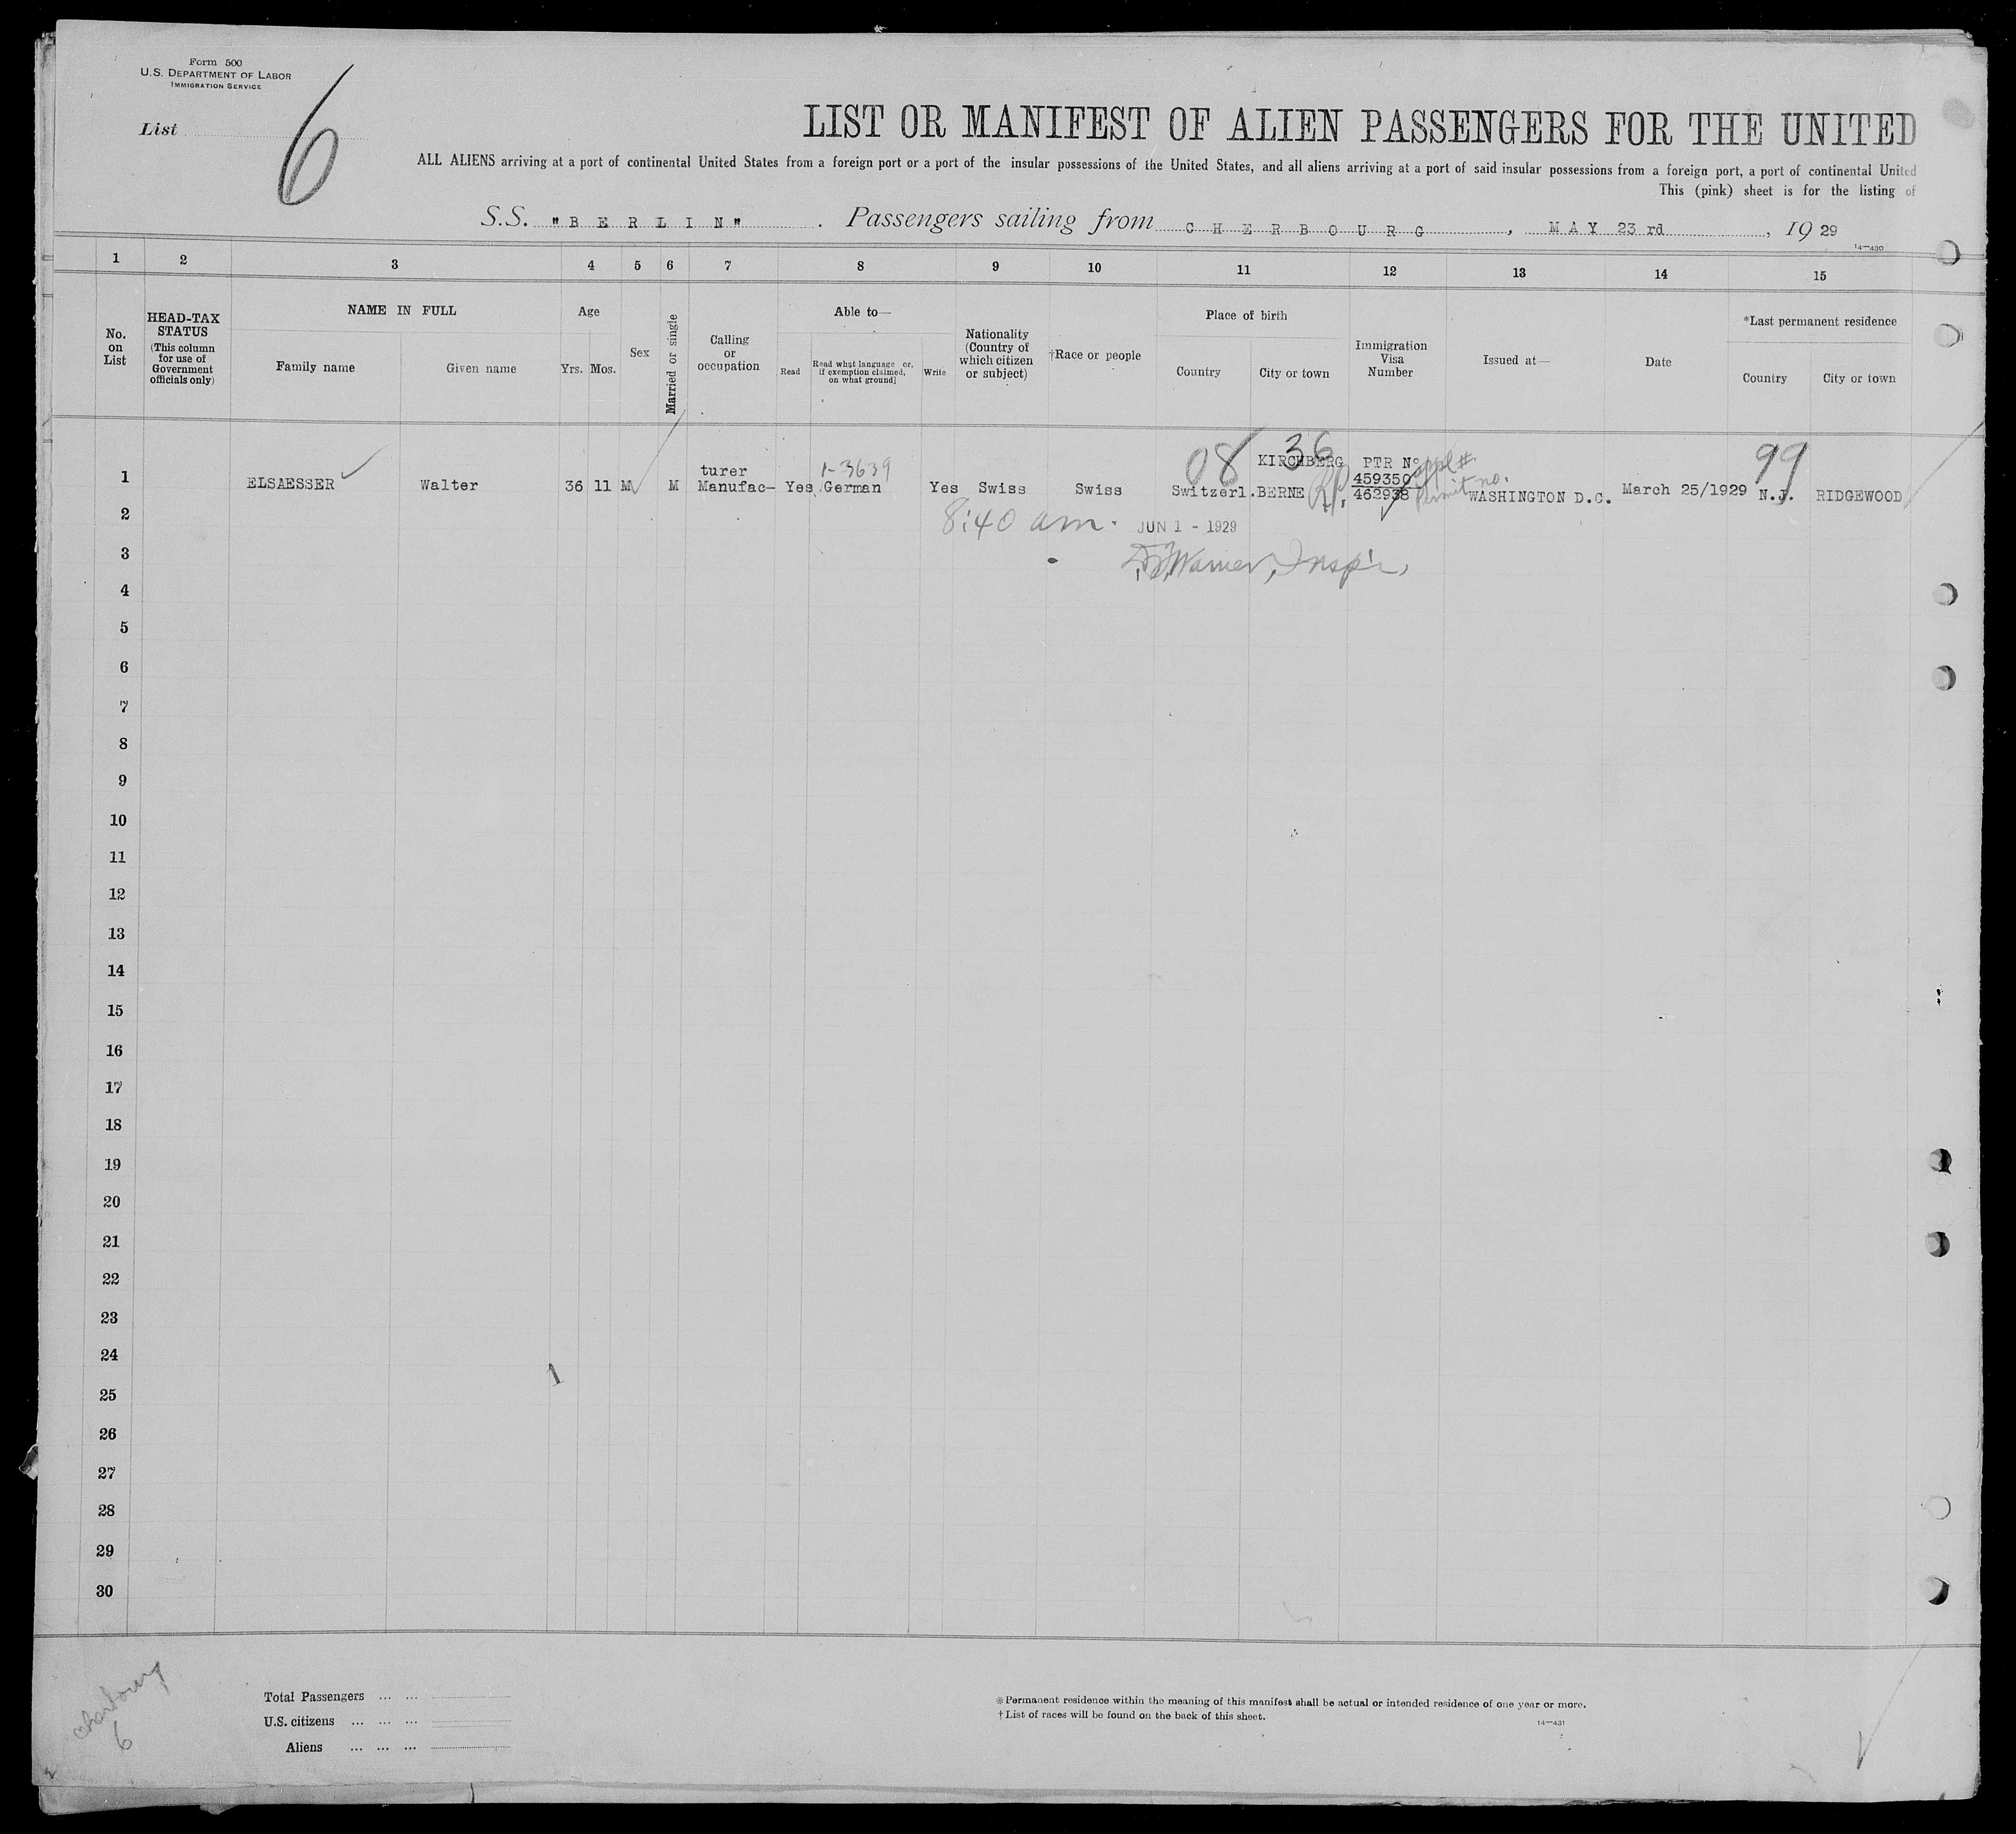 Form 500
U.S. DEPARTMENT OF LABOR
IMMIGRATION SERVICE
List
6
LIST OR MANIFEST OF ALIEN PASSENGERS FOR THE UNITED
ALL ALIENS arriving at a port of continental United States from a foreign port or a port of the insular possessions of the United States, and all aliens arriving at a port of said insular possessions from a foreign port, a port of continental United
This (pink) sheet is for the listing of
S.S. "BERLIN". Passengers sailing from CHERBOURG, MAY 23rd, 1929
14—430
1 2 3 4 5 6 7 8 9 10 11 12 13 14 15
No. on List
HEAD-TAX STATUS
(This column for use of Government officials only)
NAME IN FULL
Family name
Given name
Age
Yrs. Mos.
Sex
Married or single
Calling or occupation
Able to—
Read
Read what language [or, if exemption claimed, on what ground]
Write
Nationality (Country of which citizen or subject)
†Race or people
Place of birth
Country
City or town
Immigration Visa Number
Issued at—
Date
*Last permanent residence
Country
City or town
08 36 99
turer 1-3639 KIRCHBERG PTR No
459350 appl #
1 ELSAESSER Walter 36 11 M M Manufac- Yes German Yes Swiss Swiss Switzerl. BERNE R.P. 462938 permit no. WASHINGTON D.C. March 25/1929 N.J. RIDGEWOOD
2 8:40 am. JUN 1 - 1929
3 Warner, Insp'r,
4
5
6
7
8
9
10
11
12
13
14
15
16
17
18
19
20
21
22
23
24
1
25
26
27
28
29
30
Cherbourg
6
Total Passengers ... ...
U.S. citizens ... ... ...
Aliens ... ... ...
* Permanent residence within the meaning of this manifest shall be actual or intended residence of one year or more.
† List of races will be found on the back of this sheet.
14—431